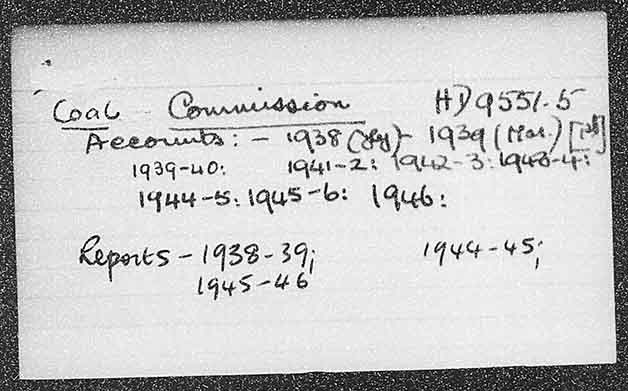 Coal Commission HD9551.5
Accounts: - 1938 (Jly) - 1939 (Mar.)
1939-40: 1941-2: 1942-3: 1943-4:
1944-5: 1945-6: 1946:
Reports - 1938-39; 1944-45;
1945-46